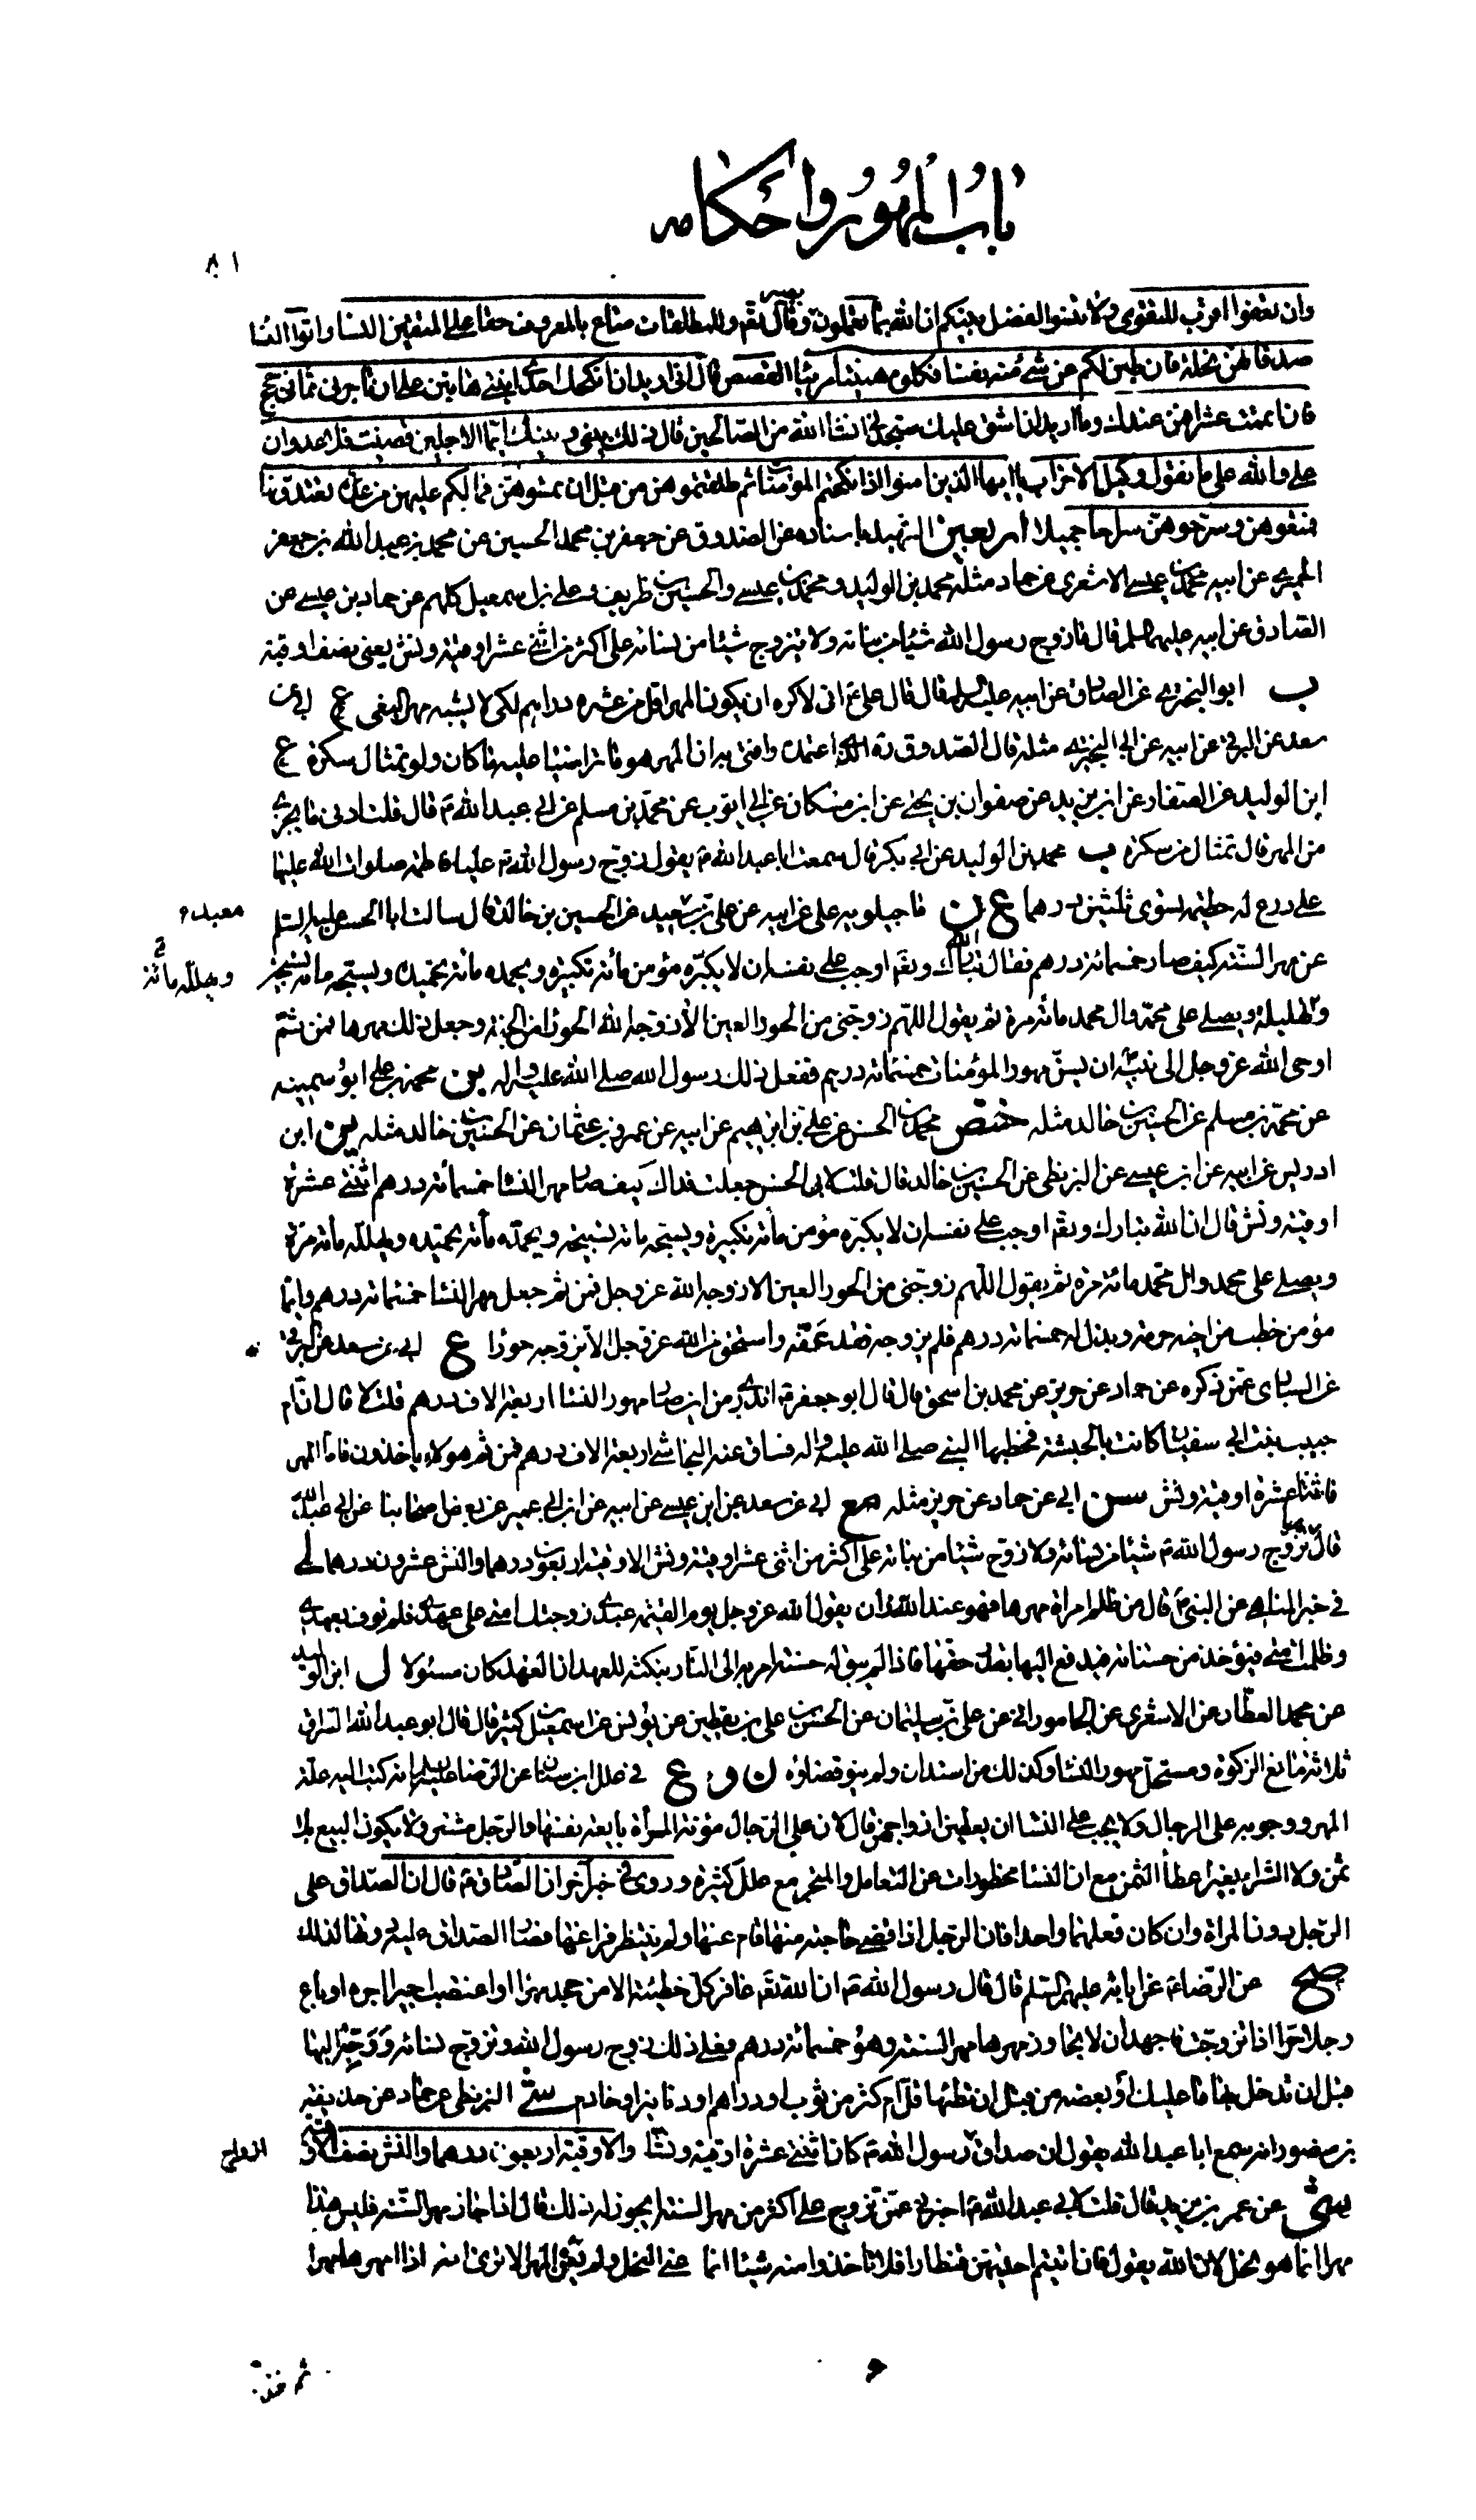 باب المهور واحكامه
٨١
وان تعفوا اقرب للتقوى ولا تنسوا الفضل بينكم ان الله بما تعملون بصير وقال تعم وللمطلقات متاع بالمعروف حقا على المتقين النساء واتوا النسا
صدقاتهن نحلة فان طبن لكم عن شئ منه نفسا فكلوه هنيئا مريئا القصص قال انى اريد ان انكحك احدى ابنتى هاتين على ان تاجرنى ثمانى حجج
فان اتممت عشرا فمن عندك وما اريد ان اشق عليك ستجدنى انشاء الله من الصالحين قال ذلك بينى وبينك ايما الاجلين قضيت فلا عدوان
على والله على ما نقول وكيل الاحزاب يا ايها الذين امنوا اذا نكحتم المؤمنات ثم طلقتموهن من قبل ان تمسوهن فما لكم عليهن من عدة تعتدونها
فمتعوهن وسرحوهن سراحا جميلا اربعين الشهيد باسناده عن الصدوق عن جعفر بن محمد الحسين عن محمد بن عبد الله بن جعفر
الحميرى عن ابيه محمد بن عيسى الاشعرى عن حماد مثله محمد بن الوليد ومحمد بن عيسى والحسين بن ظريف وعلى بن اسمعيل كلهم عن حماد بن عيسى عن
الصادق عن ابيه عليهما السلم قال ما زوج رسول الله شيئا من بناته ولا تزوج شيئا من نسائه على اكثر من اثنى عشر اوقية ونش يعنى نصف اوقية
ب ابو البخترى عن الصادق عن ابيه عليهما السلم قال قال على ع انى لاكره ان يكون المهر اقل من عشره دراهم لكى لا يشبه مهر البغى ع ابى عن
سعد عن البرقى عن ابيه عن ابى البخترى مثله قال الصدوق ره الذى اعتمده وافتى به ان المهر هو ما تراضيا عليه ما كان ولو تمثال سكرة ع
ابن الوليد عن الصفار عن ابن يزيد عن صفوان بن يحيى عن ابن مسكان عن ابى ايوب عن محمد بن مسلم عن ابى عبد الله ع قال قلت ادنى ما يجزى
من المهر قال تمثال من سكرة ب محمد بن الوليد عن ابى بكير قال سمعت ابا عبد الله ع يقول زوج رسول الله ص عليا فاطمة صلوات الله عليها
على درع له حطمية يسوى ثلثين درهما ع ن ماجيلويه على عن ابيه عن على بن معبد عن الحسين بن خالد قال سالت ابا الحسن عليه السلم
معبد
عن مهر السنة كيف صار خمسمائة درهم فقال ان الله تبارك وتعم اوجب على نفسه ان لا يكبره مؤمن مائة تكبيرة ويحمده مائة تحميدة ويسبحه مائة تسبيحة
ويهلله مائة
وتهليلة ويصلى على محمد وال محمد مائة مرة ثم يقول اللهم زوجنى من الحور العين الا زوجه الله الحوراء من الجنة وجعل ذلك مهرها فمن ثم
اوحى الله عز وجل الى نبيه ان يسن مهور المؤمنات خمسمائة درهم ففعل ذلك رسول الله صلى الله عليه واله ين محمد بن على ابو سمينه
عن محمد بن مسلم عن الحسين بن خالد مثله ختص محمد بن الحسن عن على بن ابرهيم عن ابيه عن عمرو بن عثمان عن الحسين بن خالد مثله ين ابن
ادريس عن ابيه عن ابن عيسى عن البزنطى عن الحسين بن خالد قال قلت لابى الحسن جعلت فداك كيف صار مهر النسا خمسمائة درهم اثنتى عشرة
اوقية ونش قال ان الله تبارك وتعم اوجب على نفسه ان لا يكبره مؤمن مائة تكبيرة ويسبحه مائة تسبيحة ويحمده مأئة تحميدة ويهلله مائة مرة
ويصلى على محمد وال محمد مائة مرة ثم يقول اللهم زوجنى من الحور العين الا زوجه الله عز وجل فمن ثم جعل مهر النسا خمسمائة درهم وايما
مؤمن خطب من اخيه حرمة وبذل له خمسمائة درهم فلم يزوجه فقد عقه واستحق من الله عز وجل الا يزوجه حورا ع ابى عن سعد عن البرقى
عن السيارى عمن ذكره عن حماد عن حريز عن محمد بن اسحق قال قال ابو جعفر ع اتدرى من اين صار مهور النسا اربعة الاف درهم قلت لا قال ان ام
حبيب بنت ابى سفيان كانت بالحبشة فخطبها النبى صلى الله عليه واله فساق عنه النجاشى اربعة الاف درهم فمن ثم هولاء ياخذون فاما المهر
فاثنتا عشرة اوقية ونش سن ابى عن حماد عن حريز مثله مع ابى عن سعد عن ابن عيسى عن ابيه عن ابن ابى عمير عن بعض اصحابنا عن ابى عبد الله ع
قال ما تزوج رسول الله ص شيئا من نسائه ولا زوج شيئا من بناته على اكثر من اثنى عشر اوقية ونش الاوقية اربعون درهما والنش عشرون درهما لى
فى خبر المناهى عن النبى ص قال من ظلم امراة مهرها فهو عند الله زان يقول الله عز وجل يوم القيمة عبدى زوجتك امتى على عهدى فلم توف بعهدى
وظلمت امتى فيؤخذ من حسناته فيدفع اليها بقدر حقها فاذا لم يبق له حسنة امر به الى النار بنكثه للعهد ان العهد كان مسئولا ل ابن الوليد
عن محمد العطار عن الاشعرى عن الجامورانى عن على بن سليمان عن الحسن بن على بن يقطين عن يونس عن اسمعيل كثير قال قال ابو عبد الله السراق
ثلاثة مانع الزكوة ومستحل مهور النسا وكذلك من استدان ولم ينو قضاؤه ن و ع فى علل ابن سنان عن الرضا عليه السلم انه كتب اليه علة
المهر ووجوبه على الرجال ولا يجب على النسا ان يعطين ازواجهن قال لان على الرجال مؤنة المرأة بايعة نفسها والرجل مشترى ولا يكون البيع بلا
ثمن ولا الشراء بغير اعطأ الثمن مع ان النسا محظورات عن التعامل والمتجر مع علل كثيرة وروى فى خبر اخر ان الصادق ع قال ان الصداق على
الرجل دون المراة وان كان فعلهما واحدا فان الرجل اذا قضى حاجته منها قام عنها ولم ينتظر فراغها فصار الصداق عليه دونها لذلك
صح عن الرضا ع عن ابائه عليهم السلم قال قال رسول الله ص ان الله تعم غافر كل خطيئة الا من جحد مهرا او اغتصب اجيرا اجره او باع
رجلا حرا اذا تزوجت فاجهد ان لا تجاوز مهرها مهر السنة وهو خمسمائة درهم فعلى ذلك زوج رسول الله وتزوج نسائه ووجه اليها
قبل ان تدخل بها ما عليك أو بعضه من قبل ان تطئها قل ام كثر من ثوب او دراهم او دنانير او خادم سى البزنطى عن حماد عن حذيفة
بن منصور انه سمع ابا عبد الله يقول ان صداق رسول الله ص كان اثنتى عشرة اوقية ونشا والاوقية اربعون درهما والنش نصف الاوقية
ازواج
شى عن عمر بن يزيد قال قلت لابى عبد الله ع اخبرنى عمن تزوج على اكثر من مهر السنة ايجوز له ذلك قال اذا جاز مهر السنة فليس هذا
مهرا انما هو نحل لان الله يقول فان اتيتم احديهن قنطارا فلا تاخذوا منه شيئا انما عنى النحل ولم يعن المهر الا ترى انه اذا امهرها مهرا
ثم